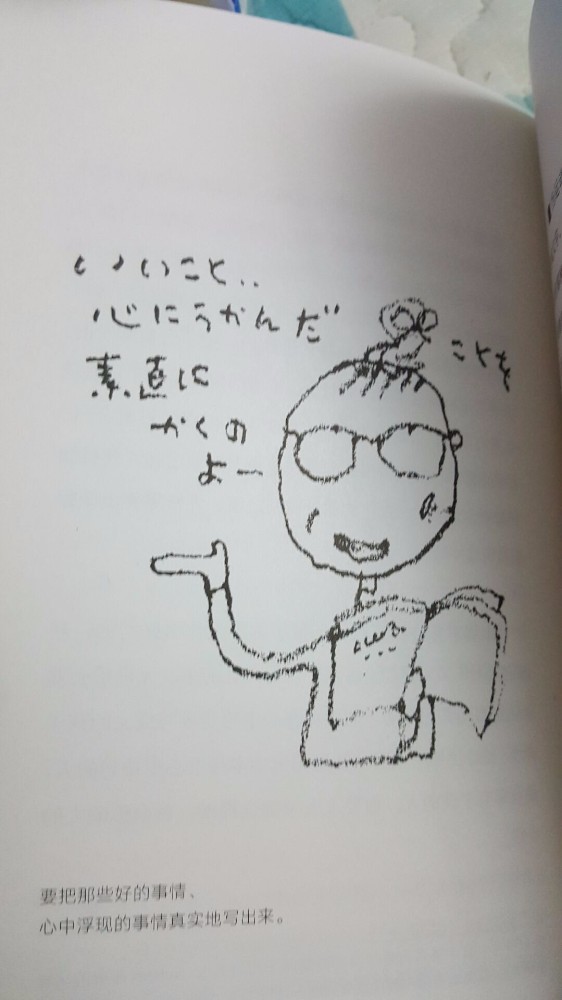 いいこと、、
心にうかんだ
ことを
素直に
かくの
よー
要把那些好的事情、
心中浮现的事情真实地写出来。